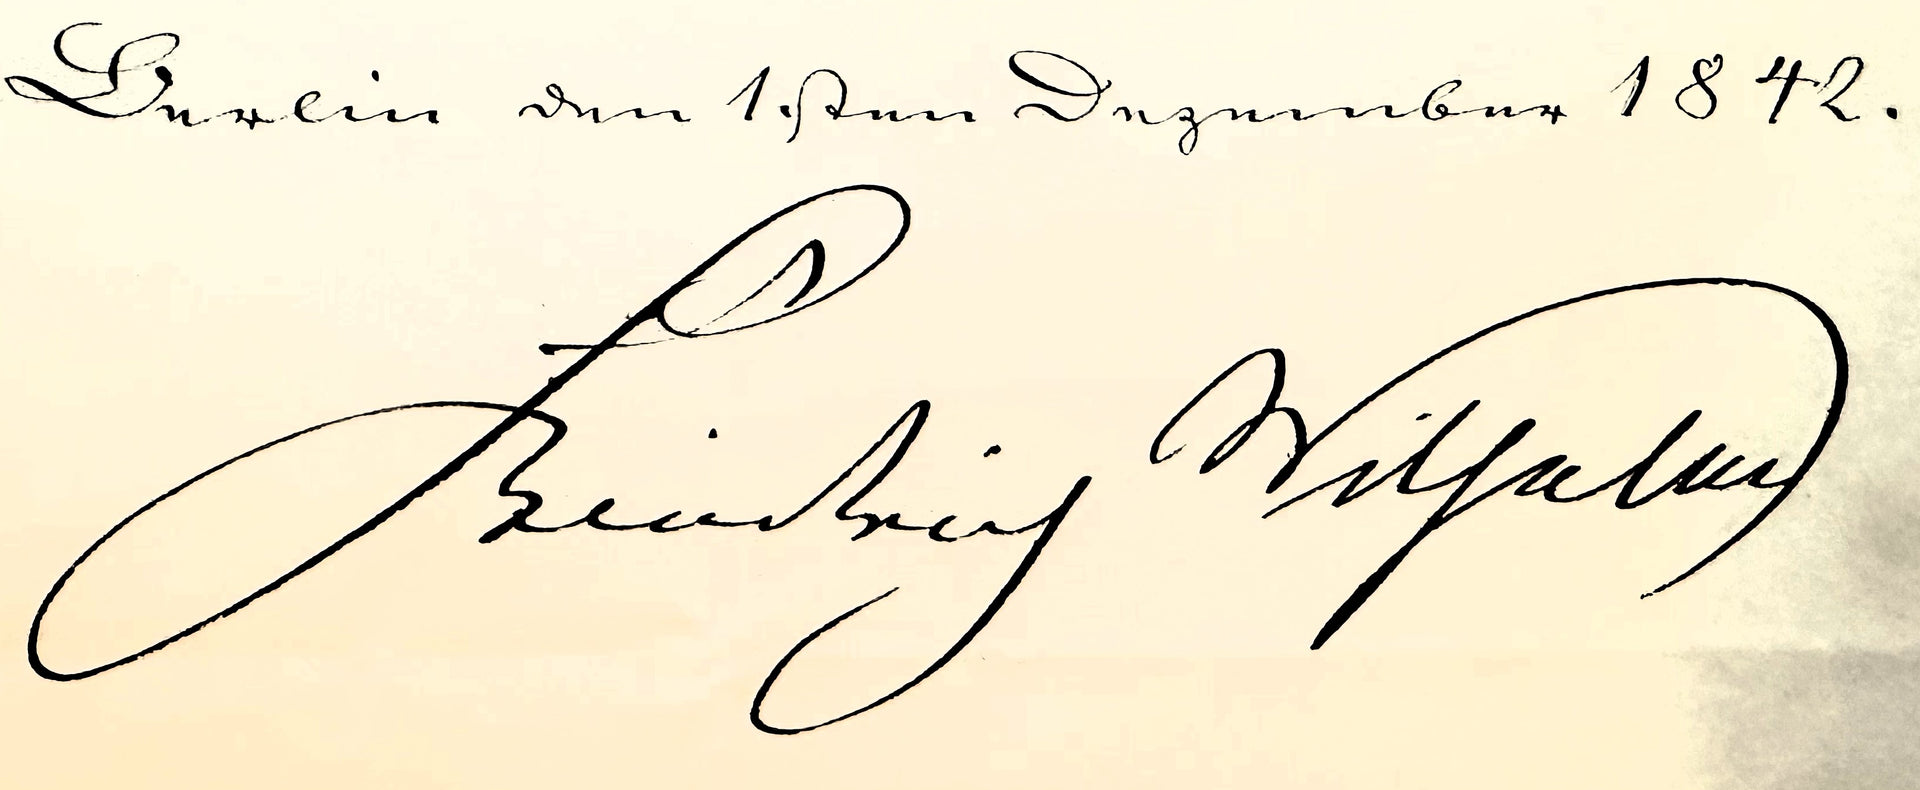 Berlin den 1sten Dezember 1842.
Friedrich Wilhelm